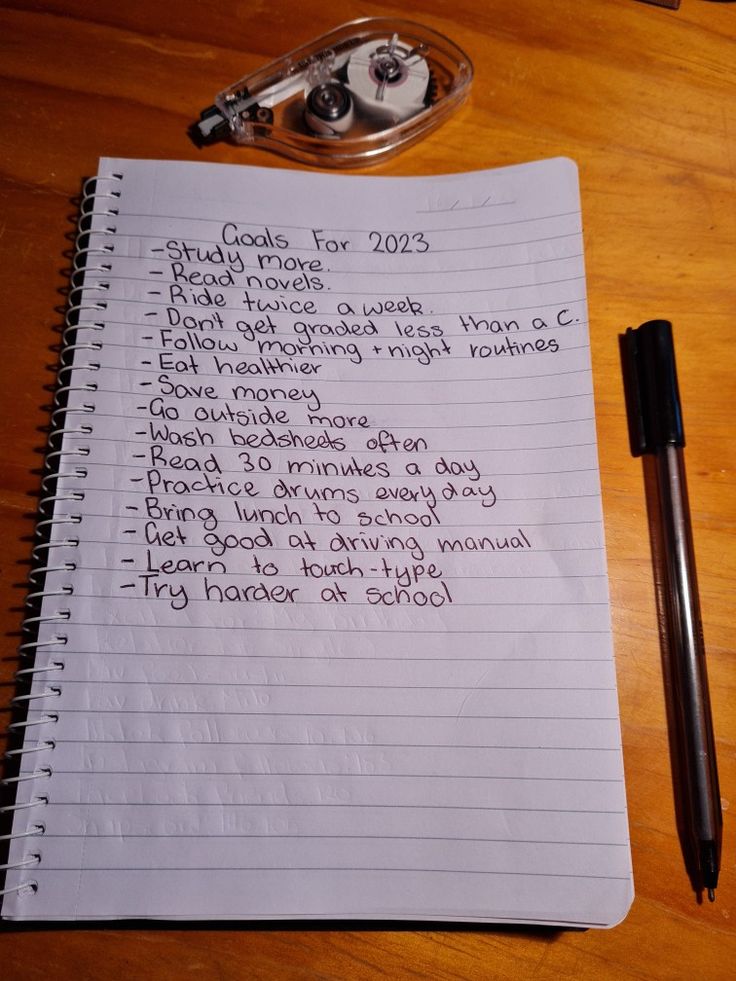 Goals For 2023
-Study more.
- Read novels.
- Ride twice a week.
- Don't get graded less than a C.
- Follow morning + night routines
- Eat healthier
- Save money
-Go outside more
-Wash bedsheets often
- Read 30 minutes a day
-Practice drums everyday
- Bring lunch to school
- Get good at driving manual
- Learn to touch-type
-Try harder at school